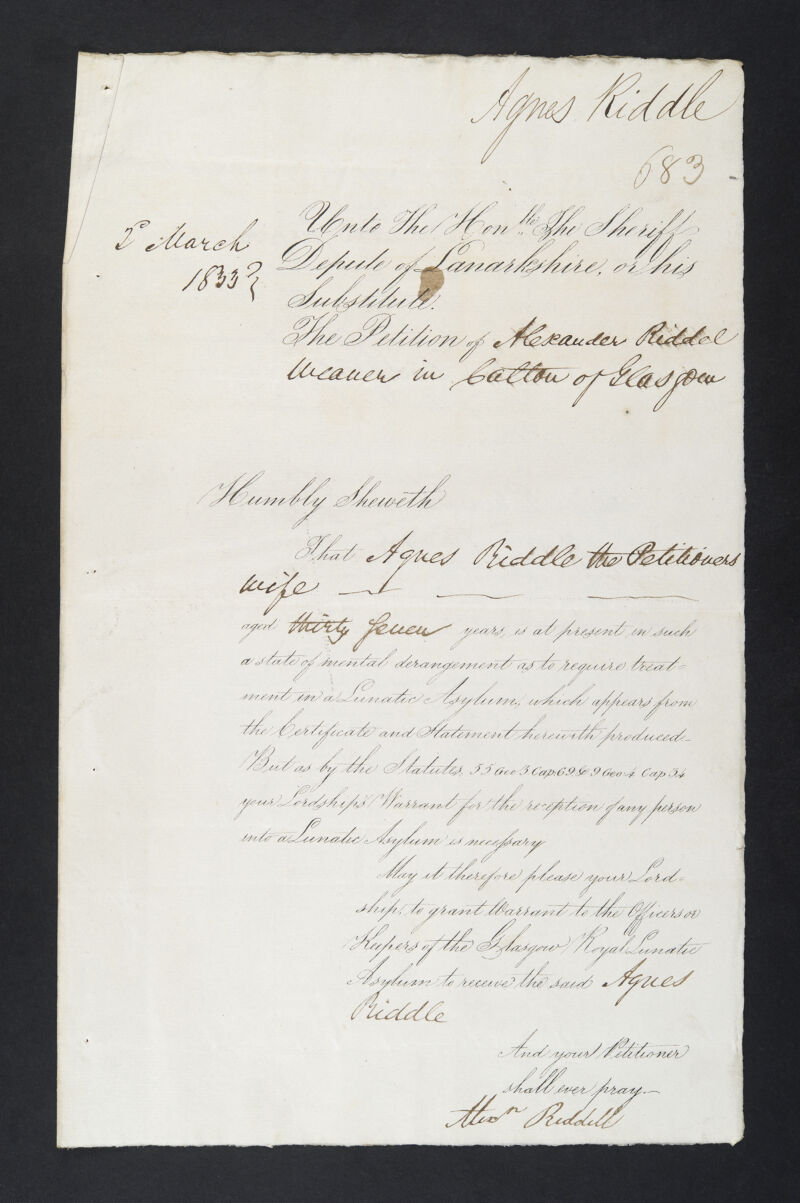 Agnes Riddle
683
2d March
1833
Unto The Honble. The Sheriff
Depute of Lanarkshire, or his
Substitute.
The Petition of Alexander Riddel
Weaver in Calton of Glasgow
Humbly Sheweth
That Agnes Riddle the Petitioners
wife
aged thirty seven years, is at present in such
a state of mental derangement as to require treat-
ment in a Lunatic Asylum, which appears from
the Certificate and Statement herewith produced-
But as by the Statutes, 55 Geo 3 Cap 69 & 9 Geo 4 Cap 34
your Lordship's Warrant for the reception of any person
into a Lunatic Asylum is necessary
May it therefore please your Lord-
ship, to grant Warrant to the Officers or
Keepers of the Glasgow Royal Lunatic
Asylum to receive the said Agnes
Riddle
And your Petitioner
shall ever pray-
Alexr Riddell